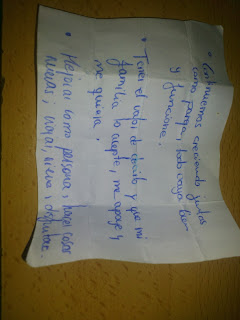 • Continuemos creciendo juntos
como pareja, todo vaya bien
y funcione.
• Tener el valor de decirlo y que mi
familia lo acepte, me apoye y
me quiera.
• Mejorar como persona, hacer cosas
nuevas; viajar, disfrutar